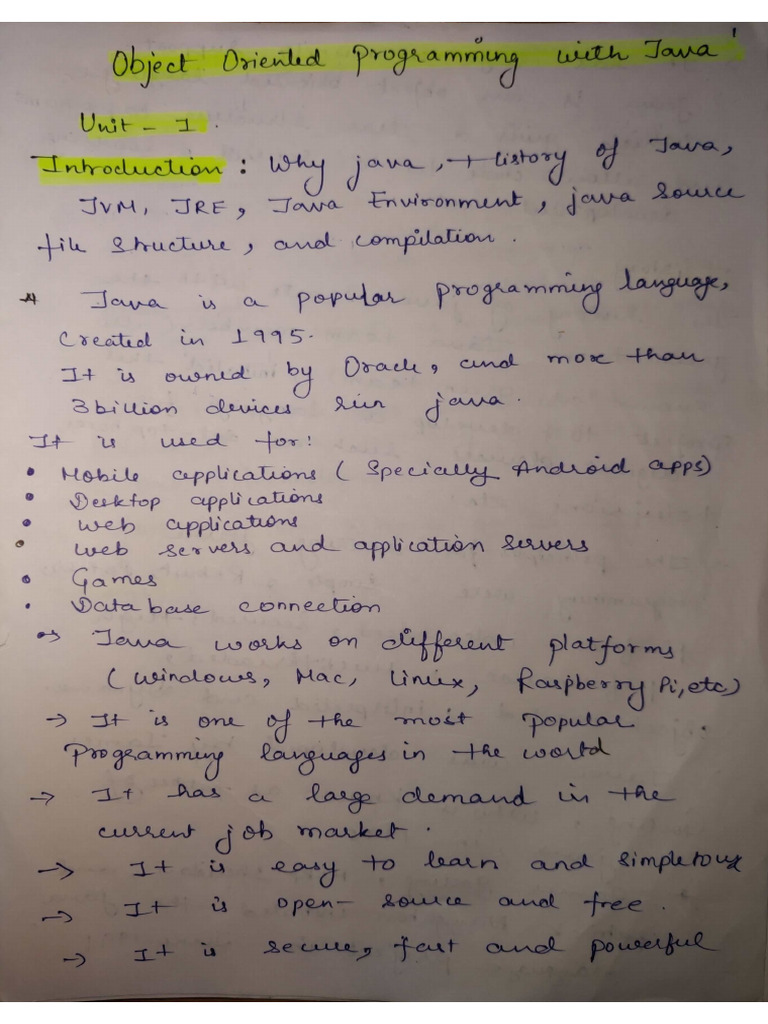 Object Oriented Programming with Java
Unit - I.
Introduction : Why java, History of Java,
JVM, JRE, Java Environment, java source
file structure, and compilation.
Java is a popular programming language,
created in 1995.
It is owned by Oracle, and more than
3billion devices run java.
It is used for:
• Mobile applications ( Specially Android apps)
• Desktop applications
• Web applications
• Web servers and application servers
• Games
• Database connection
→ Java works on different platforms
(Windows, Mac, Linux, Raspberry Pi, etc)
→ It is one of the most popular
Programming languages in the world
→ It has a large demand in the
current job market.
→ It is easy to learn and simple to use
→ It is open-source and free.
→ It is secure, fast and powerful